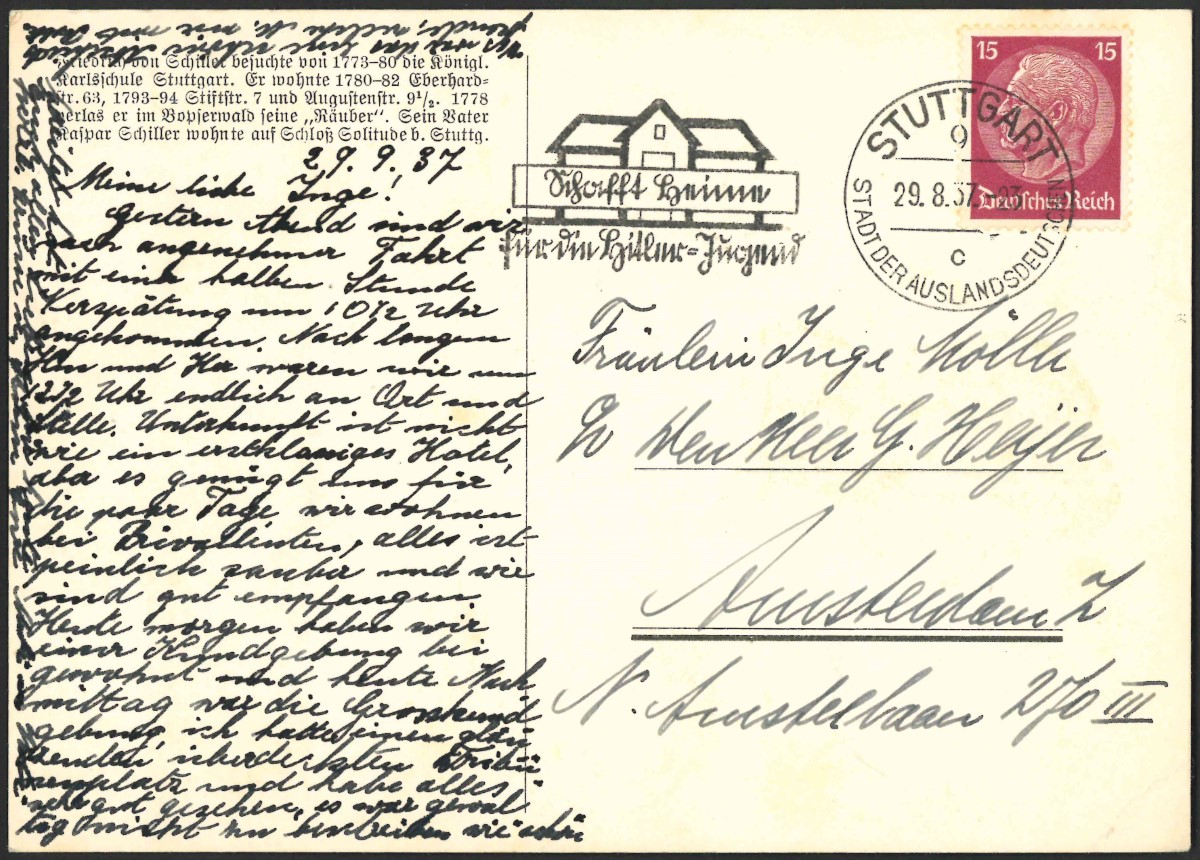 Friedrich von Schiller besuchte von 1773-80 die Königl.
Karlsschule Stuttgart. Er wohnte 1780-82 Eberhard=
str. 63, 1793-94 Stiftstr. 7 und Augustenstr. 9½. 1778
verlas er im Bopserwald seine „Räuber". Sein Vater
Kaspar Schiller wohnte auf Schloß Solitude b. Stuttg.
29. 9. 37
Meine liebe Inge!
Gestern Abend sind wir
nach angenehmer Fahrt
mit einer halben Stunde
Verspätung um 10½ Uhr
angekommen. Nach langem
Hin und Her waren wir um
12½ Uhr endlich an Ort und
Stelle. Unterkunft ist nicht
wie ein erstklassiges Hotel,
aber es genügt uns für
die paar Tage wir wohnen
bei Privatleuten, alles ist
peinlich sauber und wir
sind gut empfangen
Heute morgen haben wir
einer Kundgebung bei
gewohnt und heute Nach
mittag war die Grosskund
gebung, ich hatte einen glän
zenden überdeckten Tribü
nenplatz und habe alles
sehr gut gesehen, es war gewal
tig nicht zu beschreiben wie schön
Schafft Heime
für die Hitler=Jugend
STUTTGART
9
29.8.37.-23
c
STADT DER AUSLANDSDEUTSCHEN
15 15
Deutsches Reich
Fräulein Inge Mölle
p/a Den Heer G. Heijer
Amsterdam Z
N. Amstellaan 270 III